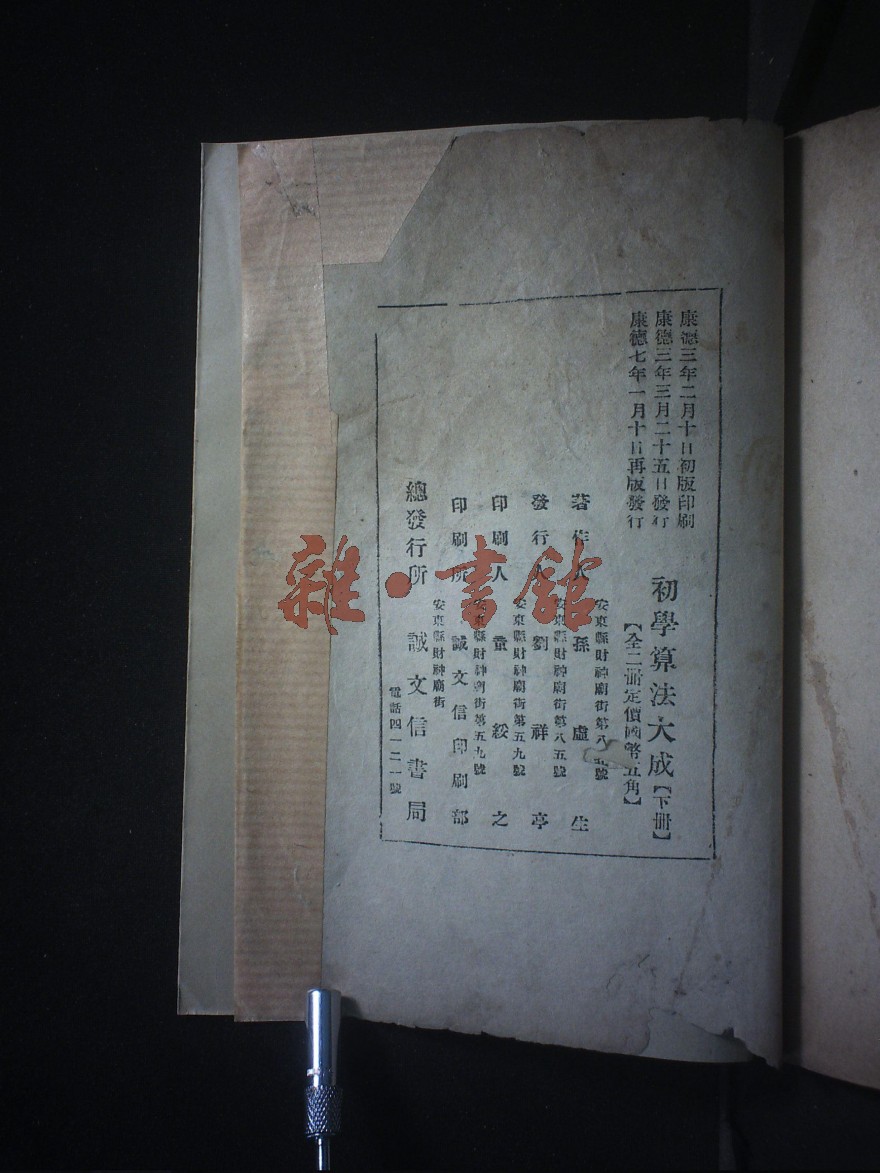 康德三年二月十日初版印刷
康德三年三月二十五日發行
康德七年一月十日再版發行
初學算法大成【下冊】
【全二冊定價國幣五角】
安東縣財神廟街第八號
著作人 孫虛生
安東縣財神廟街第八五號
發行人 劉祥亭
安東縣財神廟街第五九號
印刷人 之
安東縣財神廟街第五九號
印刷所 誠文信印刷部
安東縣財神廟街
總發行所 誠文信書局
電話四一二一號
雜·書館